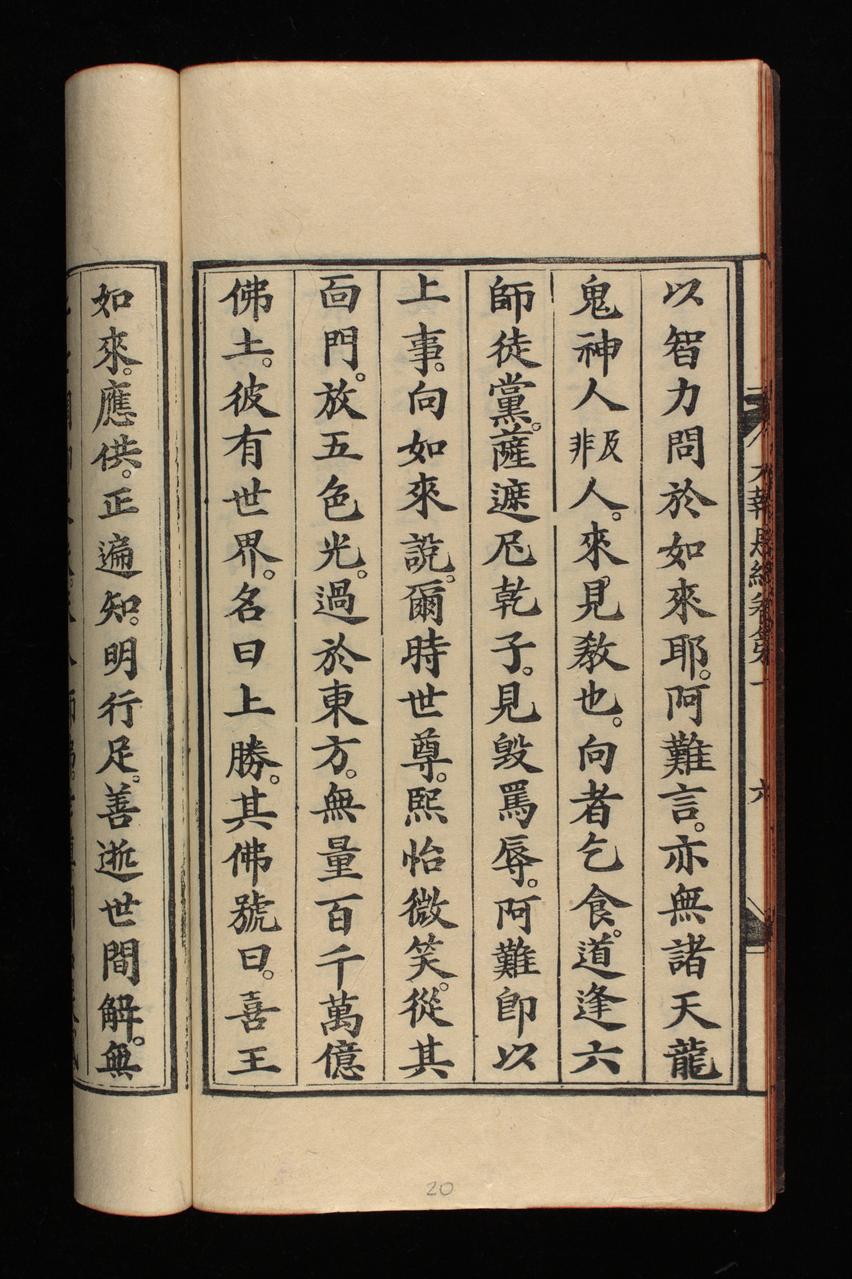 大報恩經卷第一
六
以智力問於如來耶。阿難言。亦無諸天龍
鬼神人及非人。來見教也。向者乞食。道逢六
師徒黨。薩遮尼乾子。見毀罵辱。阿難即以
上事。向如來說。爾時世尊。熙怡微笑。從其
面門。放五色光。過於東方。無量百千萬億
佛土。彼有世界。名曰上勝。其佛號曰。喜王
如來。應供。正遍知。明行足。善逝世間解。無
20